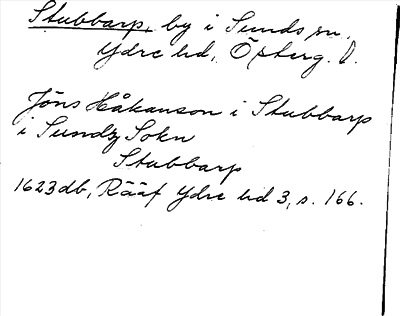 Stubbarp, by i Sunds sn.
Ydre hd, Östерg. l.
Jöns Håkanson i Stubbarp
i Sundz Sokn
Stubbarp
1623 db, Rääf Ydre hd 3, s. 166.